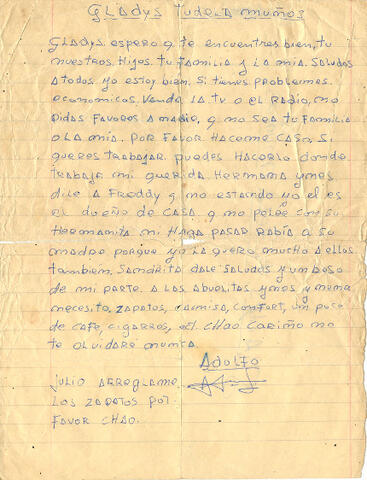 GLADYS TUDELA MUÑOS
GLADYS. ESPERO Q TE ENCUENTRES BIEN, TU
NUESTROS HIJOS. TU FAMILIA Y LA MIA. SALUDOS
A TODOS. YO ESTOY BIEN. SI TIENES PROBLEMAS
ECONOMICOS. VENDA LA TV O EL RADIO, NO
PIDAS FAVORES A NADIE, Q NO SEA TU FAMILIA
O LA MIA. POR FAVOR HACEME CASO. SI
QUERES TRABAJAR. PUEDES HACERLO DONDE
TRABAJA MI QUERIDA HERMANA YNES
DILE A FREDDY Q NO ESTANDO YO EL ES
EL DUEÑO DE CASA, Q NO PELEE CON SU
HERMANITA NI HAGA PASAR RABIA A SU
MADRE PORQUE YO LA QUERO MUCHO A ELLOS
TAMBIEM. SANDRITA DALE SALUDOS Y UN BESO
DE MI PARTE. A LAS ABUELITAS YNES Y NENA
NECESITO, ZAPATOS, CAMISA, CONFORT, UN POCO
DE CAFE, CIGARROS, CHAO CARIÑO NO
TE OLVIDARE NUNCA.
ADOLFO
JULIO ARREGLAME
LOS ZAPATOS POR
FAVOR CHAO.